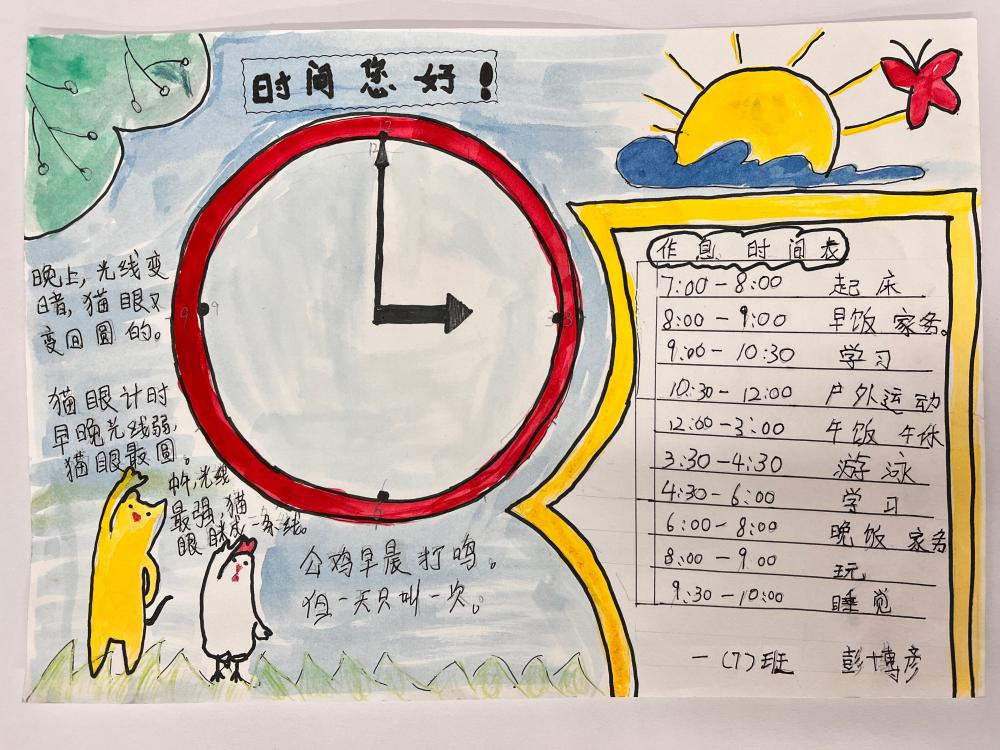 时间您好!
12
3
6
9
晚上,光线变
暗,猫眼又
变回圆的。
猫眼计时
早晚光线弱,
猫眼最圆。
中午,光线
最强,猫
眼眯成一条线。
公鸡早晨打鸣。
但一天只叫一次。
作息时间表
7:00-8:00 起床
8:00-9:00 早饭 家务。
9:00-10:30 学习
10:30-12:00 户外运动
12:00-3:00 午饭 午休
3:30-4:30 游泳
4:30-6:00 学习
6:00-8:00 晚饭 家务
8:00-9:00 玩,
9:30-10:00 睡觉
一(7)班 彭博彦